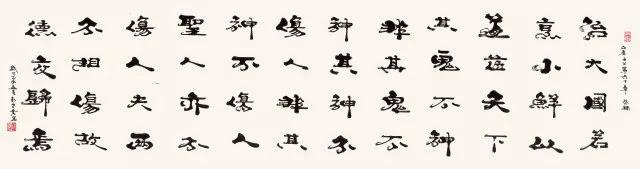 治大國若
烹小鮮以
道莅天下
其鬼不神
非其鬼不
神其神不
傷人非其
神不傷人
聖人亦不
傷人夫兩
不相傷故
德交歸焉